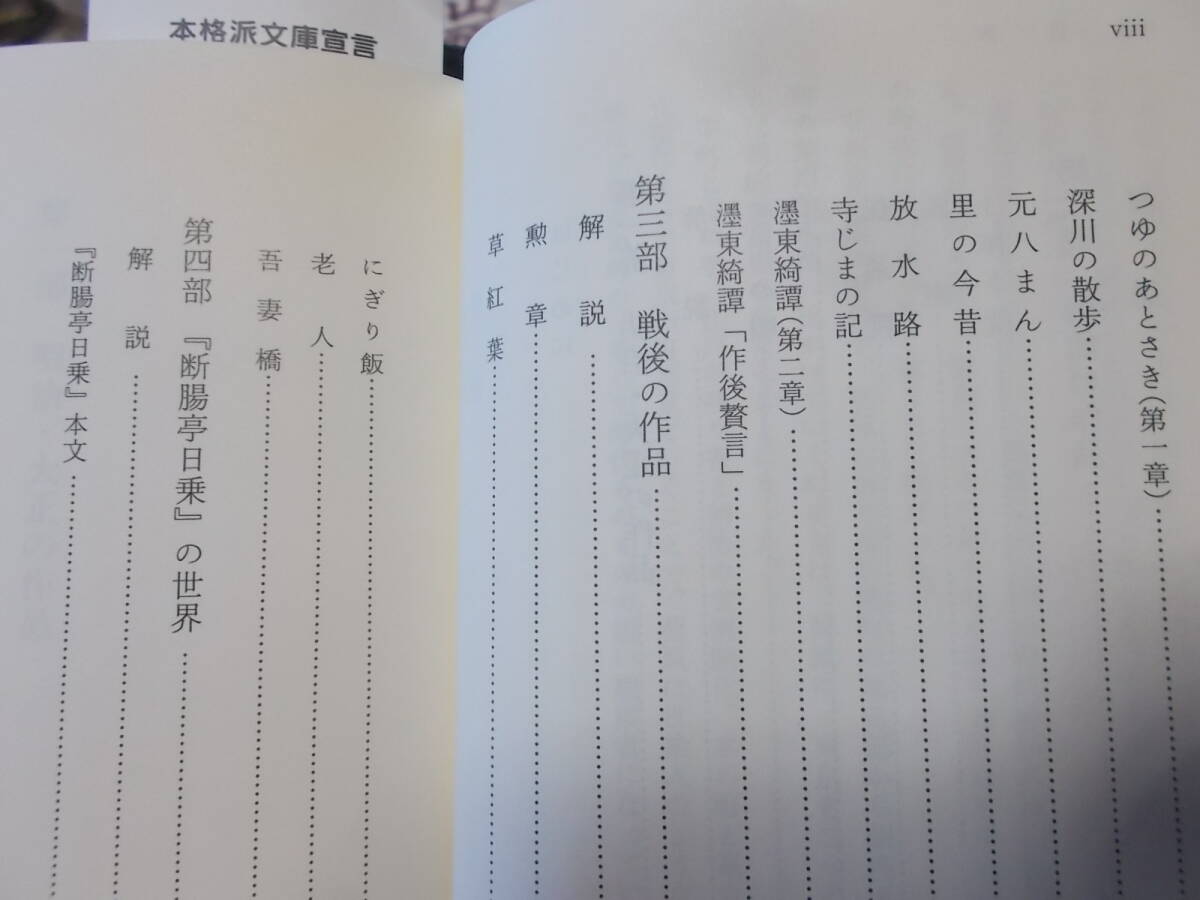 本格派文庫宣言
viii
つゆのあとさき（第一章）
深川の散歩
元八まん
里の今昔
放水路
寺じまの記
濹東綺譚（第二章）
濹東綺譚「作後贅言」
第三部 戦後の作品
解説
勲章
草紅葉
にぎり飯
老人
吾妻橋
第四部 『断腸亭日乗』の世界
解説
『断腸亭日乗』本文